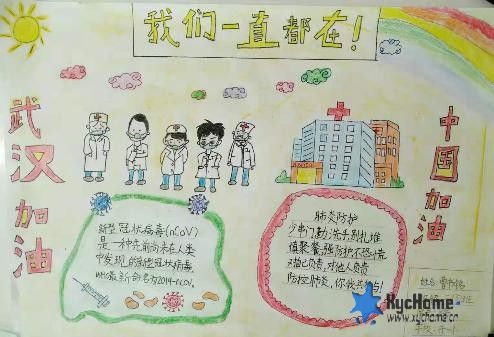 我们一直都在!
武汉加油
中国加油
新型冠状病毒(nCoV)
是一种先前尚未在人类
中发现的新型冠状病毒,
WHO最新命名为2019-nCoV.
肺炎防护
少串门勤洗手别扎堆
值聚餐,强防护不恐慌
对自己负责,对他人负责
防控肺炎,你我参与!
姓名
XycHome
www.xychome.cn